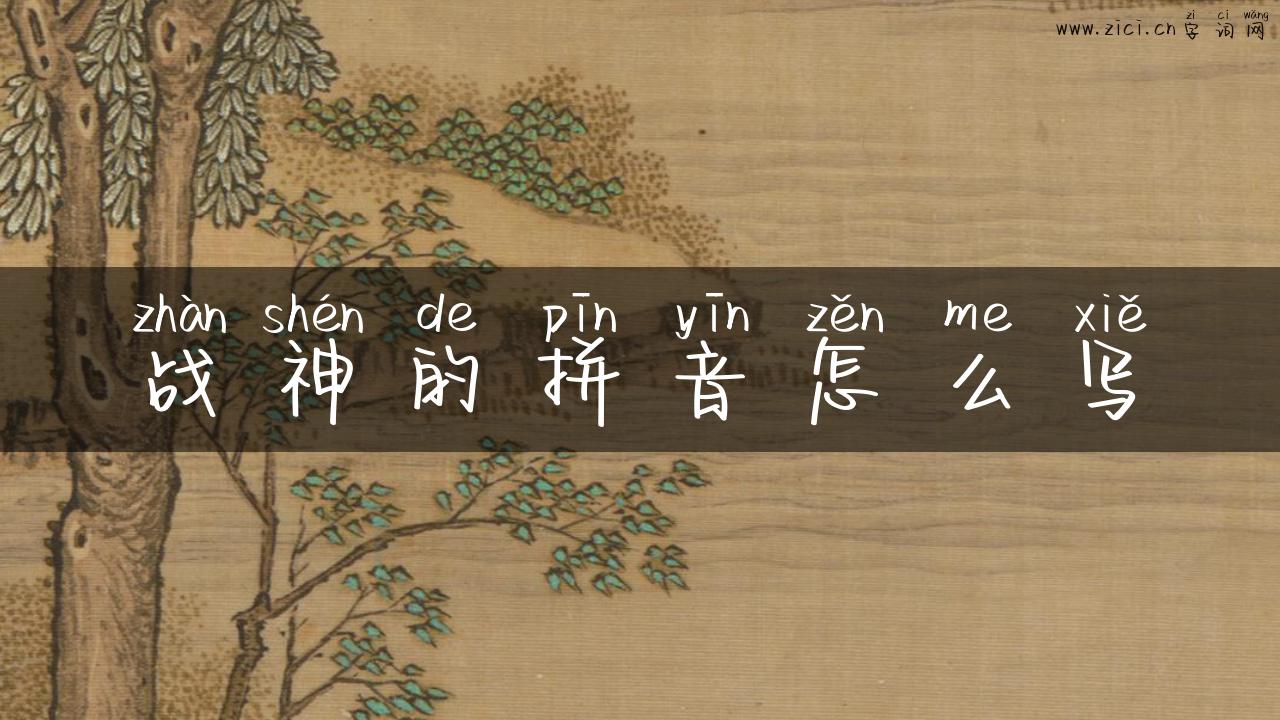 zì cí wǎng
www.zici.cn 字词网
zhàn shén de pīn yīn zěn me xiě
战神的拼音怎么写